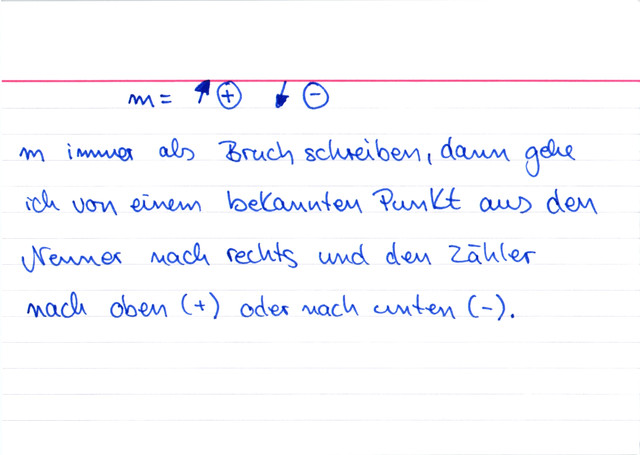 m = ↑⊕ ↓⊖
m immer als Bruch schreiben, dann gehe
ich von einem bekannten Punkt aus den
Nenner nach rechts und den Zähler
nach oben (+) oder nach unten (-).